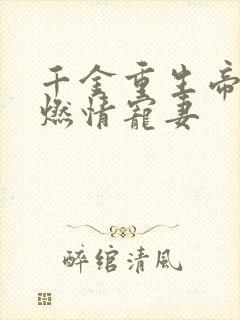 千金重生帝
燃情宠妻
醉绾清風